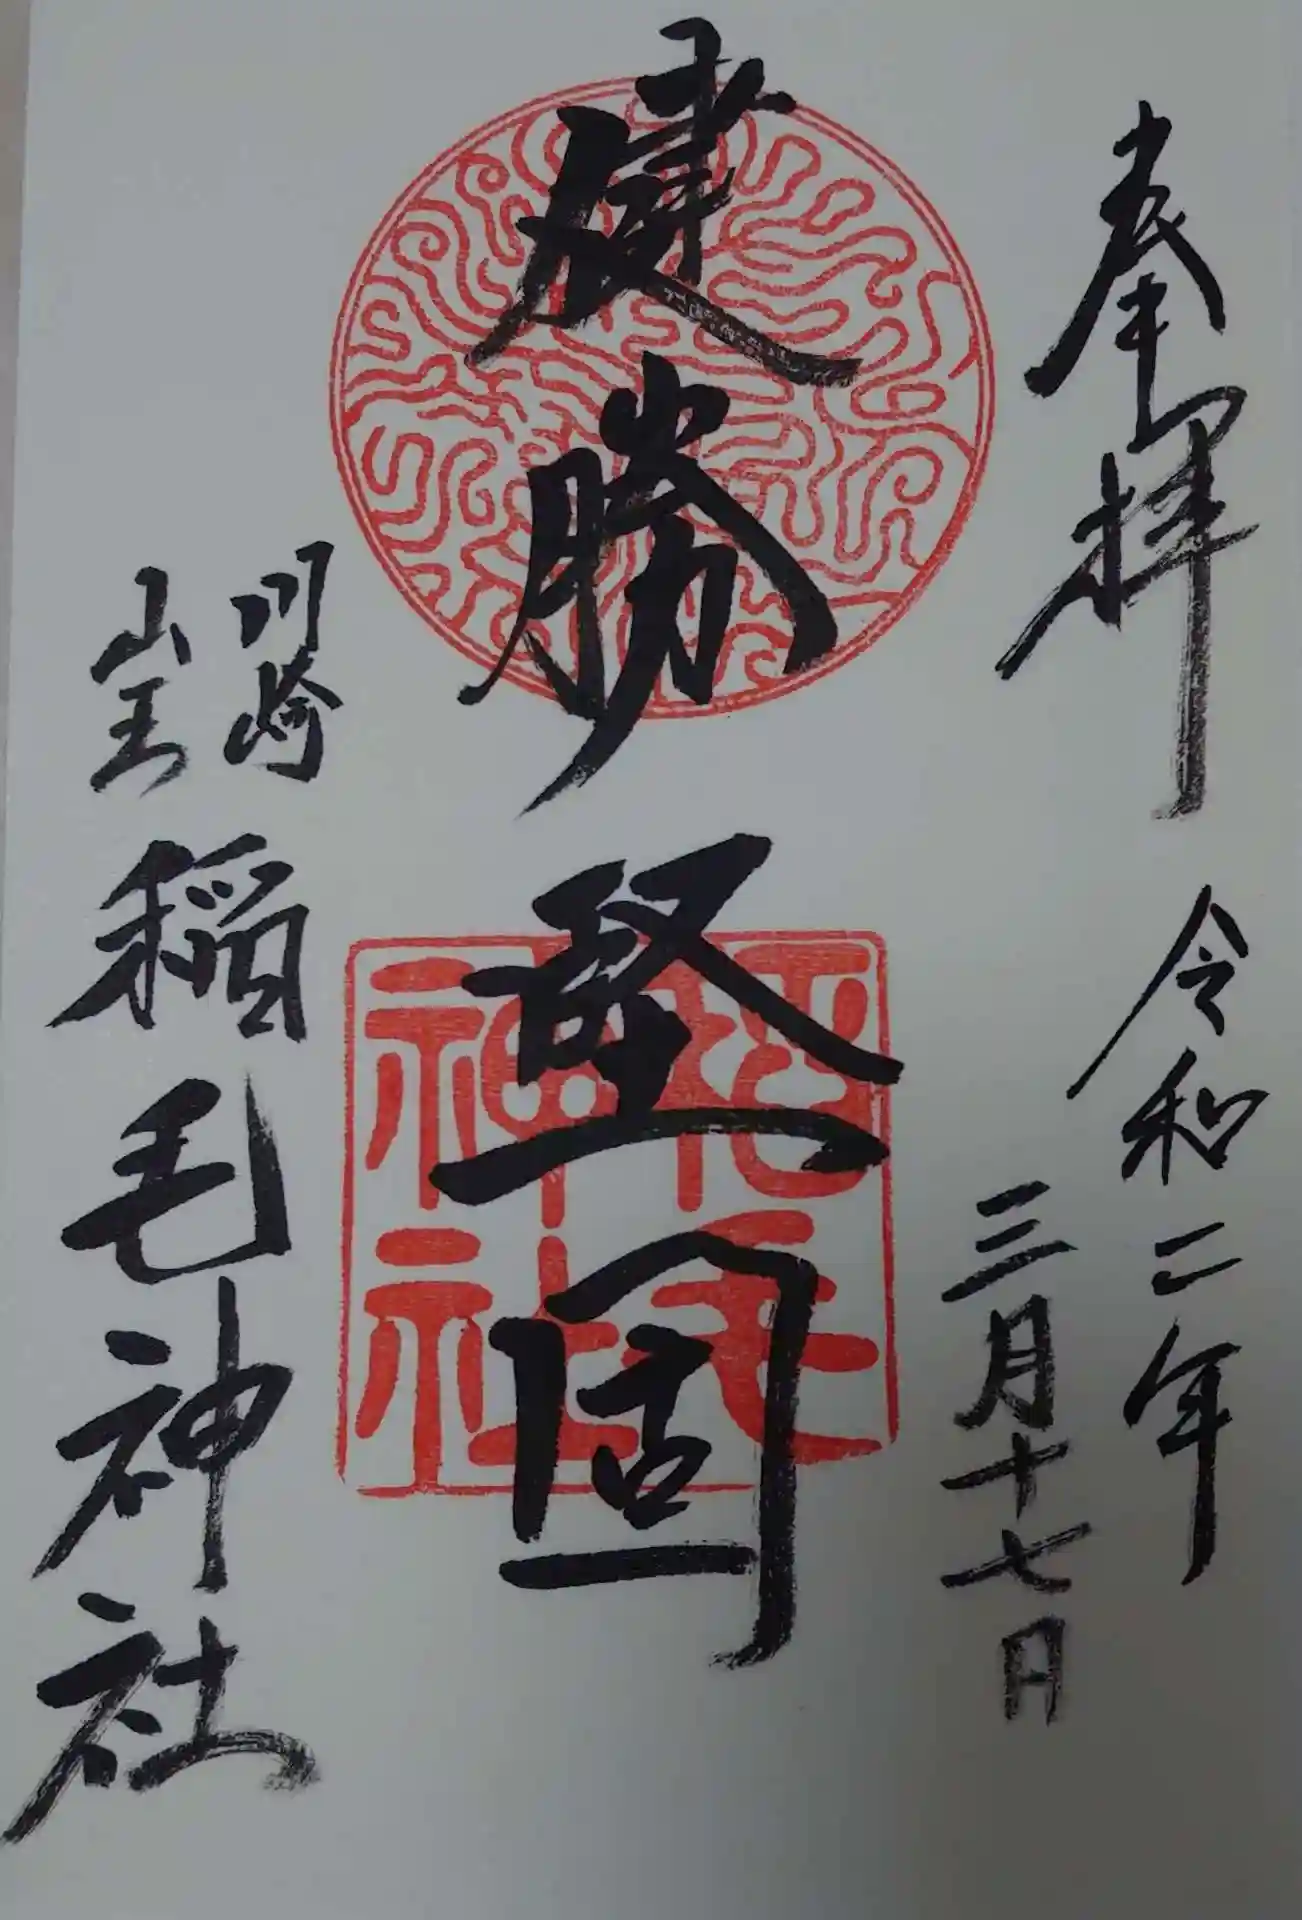 奉拝 令和二年
三月十七日
健勝堅固
稲毛
神社
川崎
山王
稲毛神社